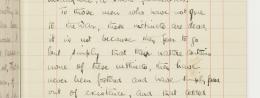 To those men who have not gone
to the War, these instincts are dead,
it is not because they fear to go
but simply that their nature contains
none of these instincts, they have
never been fostered and have simply gone
out of existence, and that